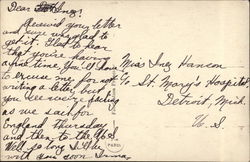 Dear Inz!
Received your letter
and sure was glad to
get it. Glad to hear
that you're having
a fine time. You'll have
to excuse me for not
writing a letter, but
you see we're
as we sail for
England Thursday
and then to the U.S.
Well so long I
will see soon
Miss Inz Hanson
℅ St. Mary's Hospital,
Detroit, Mich.
U.S.
PARIS